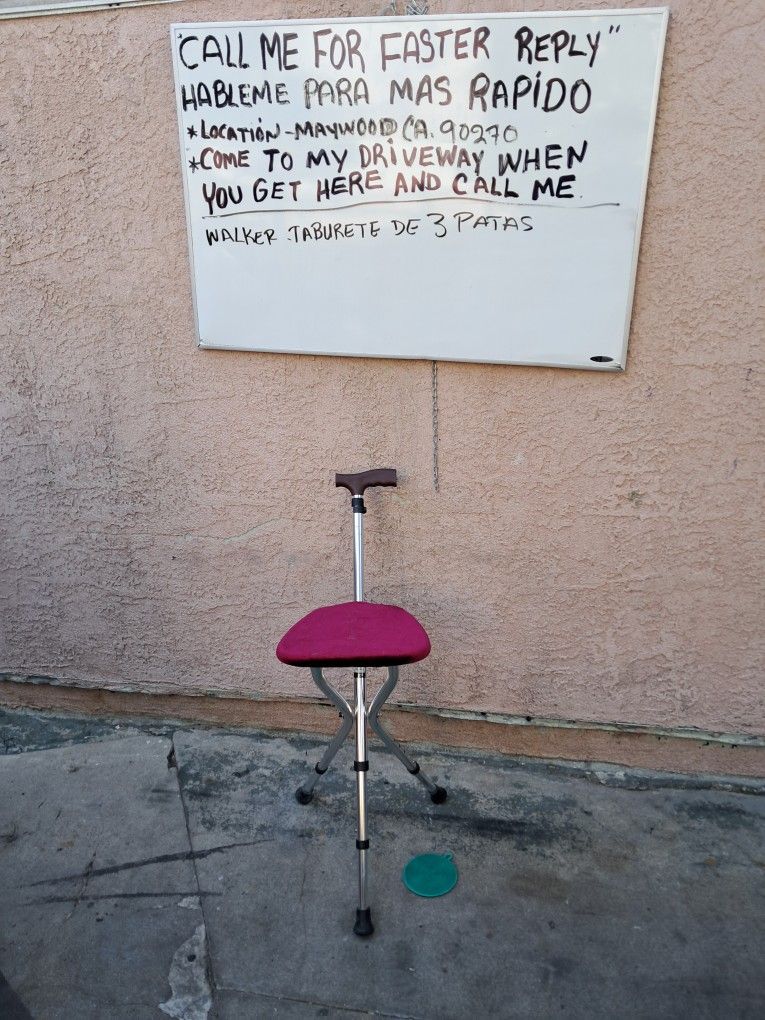 "CALL ME FOR FASTER REPLY"
HABLEME PARA MAS RAPIDO
*LOCATION-MAYWOOD CA. 90270
*COME TO MY DRIVEWAY WHEN
YOU GET HERE AND CALL ME
WALKER TABURETE DE 3 PATAS